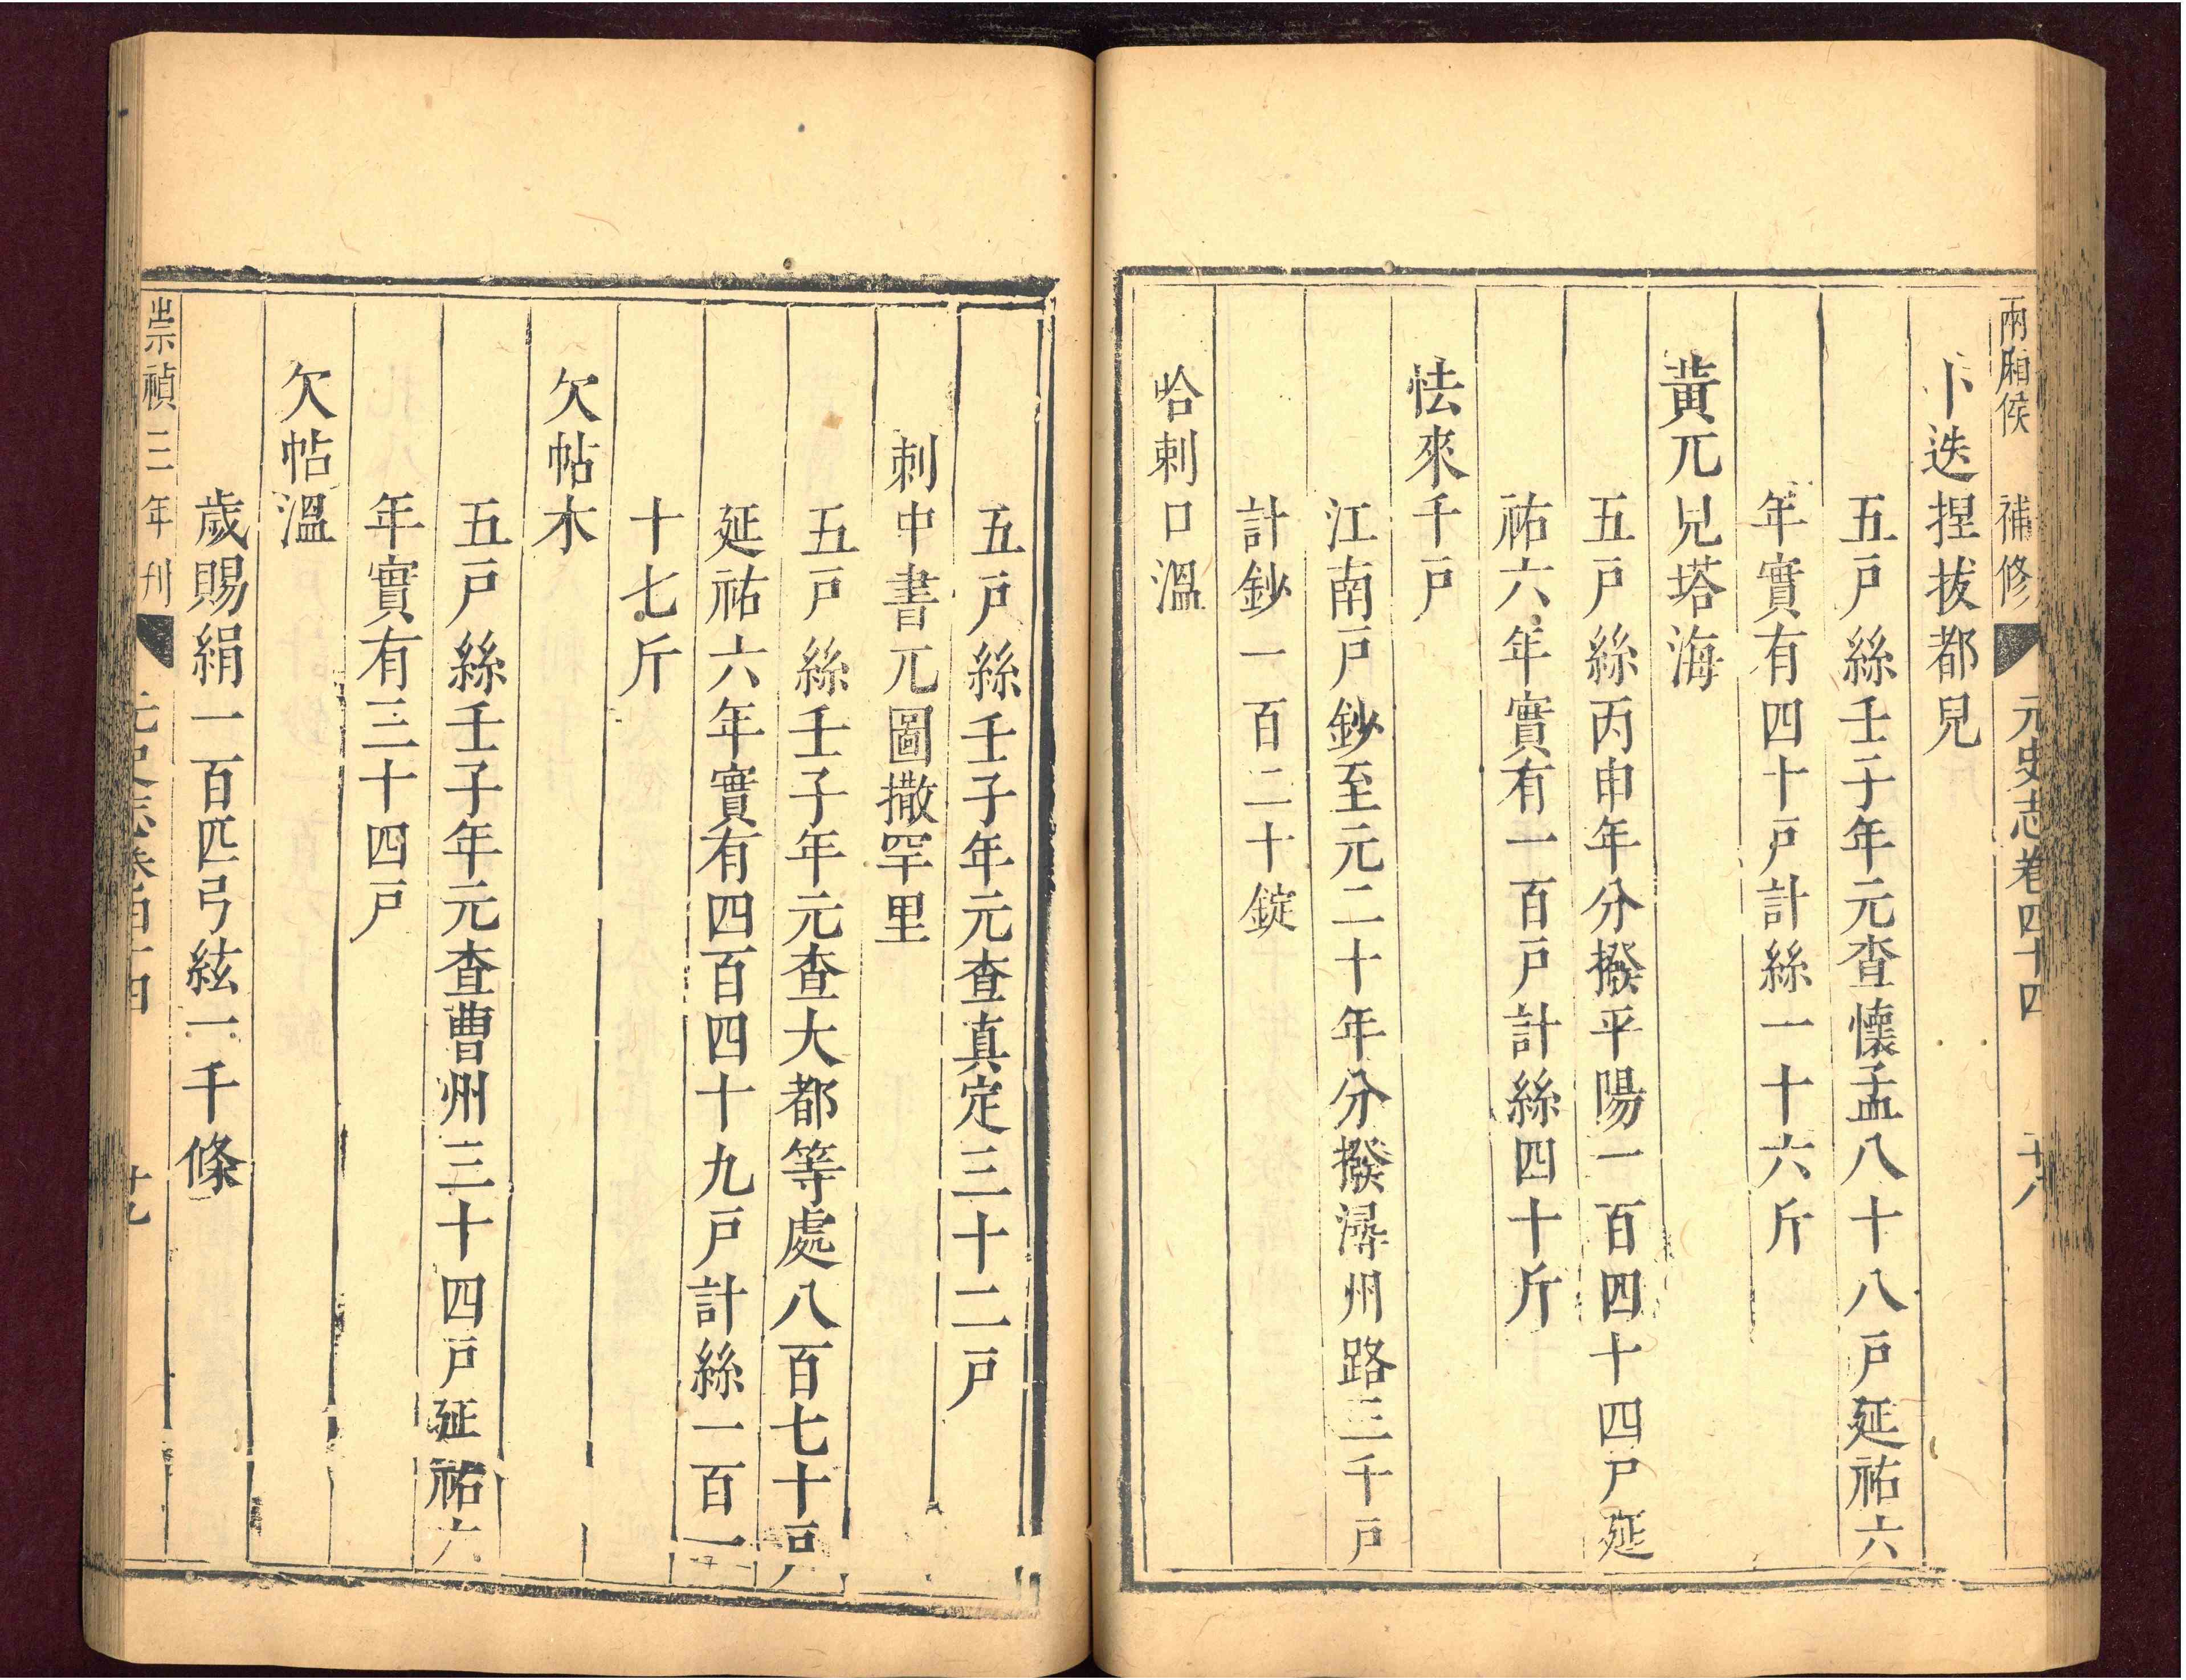 兩廂侯　補修　元史志卷四十四　十八
卜迭捏拔都兒
五戶絲壬子年元查懷孟八十八戶延祐六
年實有四十戶計絲一十六斤
黃兀兒塔海
五戶絲丙申年分撥平陽一百四十四戶延
祐六年實有一百戶計絲四十斤
怯來千戶
江南戶鈔至元二十年分撥潯州路三千戶
計鈔一百二十錠
哈剌口溫
五戶絲壬子年元查真定三十二戶
剌中書兀圖撒罕里
五戶絲壬子年元查大都等處八百七十戶
延祐六年實有四百四十九戶計絲一百一
十七斤
欠帖木
五戶絲壬子年元查曹州三十四戶延祐六
年實有三十四戶
欠帖溫
歲賜絹一百匹弓絃一千條
崇禎三年刊